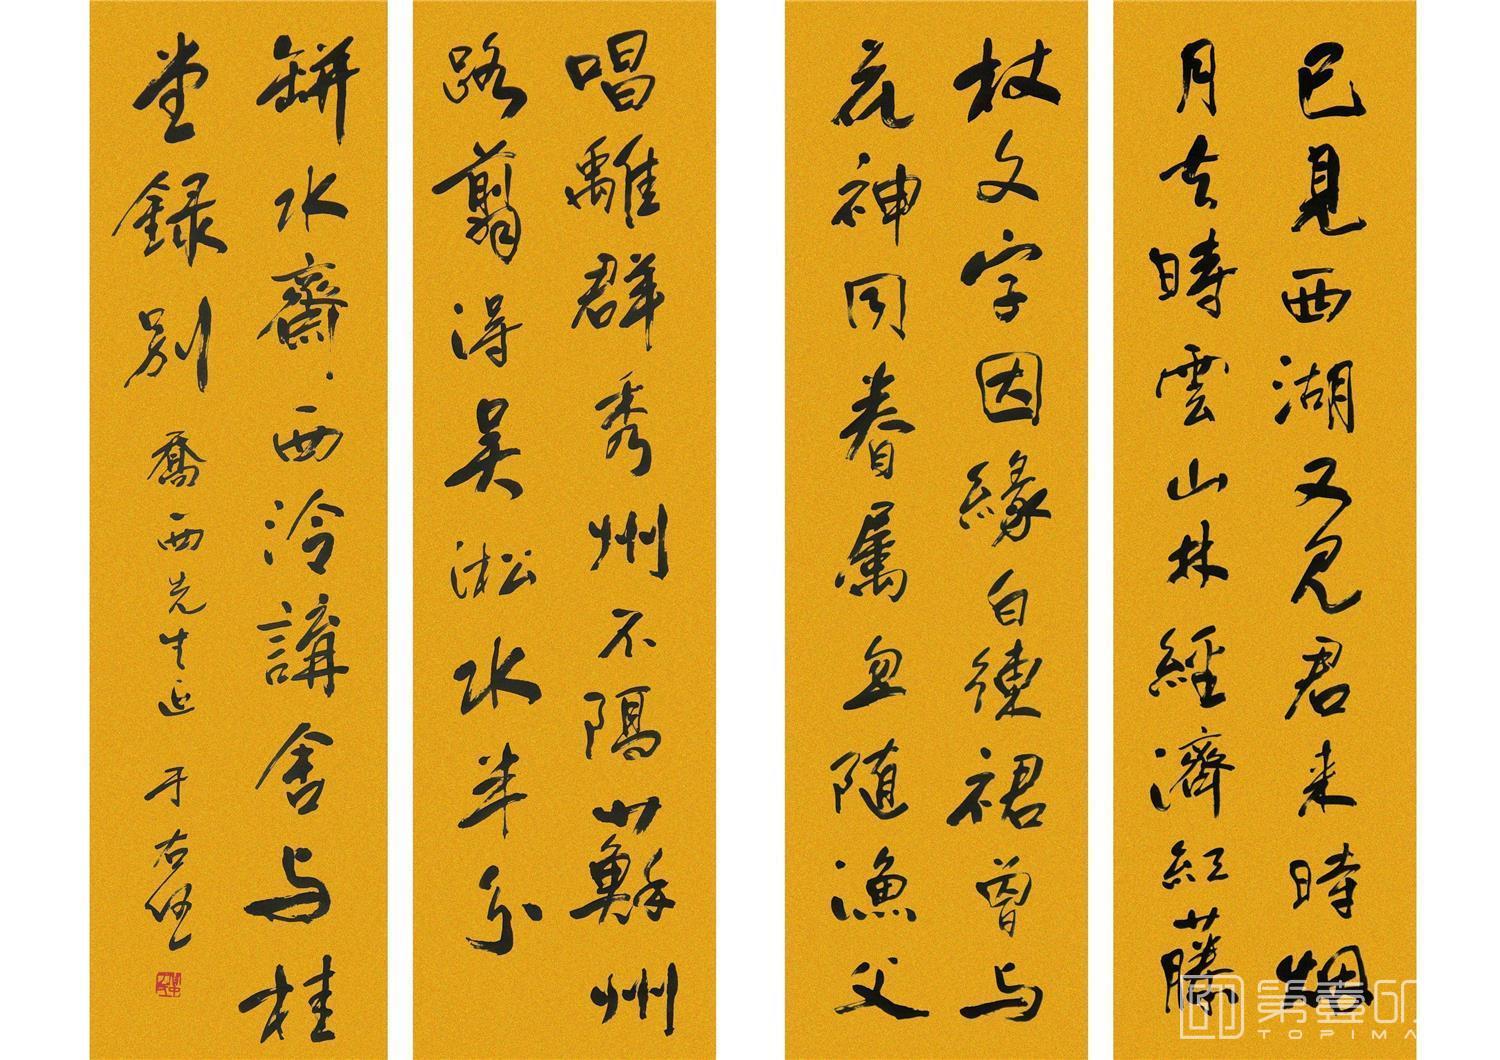 已見西湖又見君来時烟
月去時雲山林經濟紅藤
杖文字因緣白練裙曾与
花神同眷属忽随漁父
唱離群秀州不隔蘇州
路翦得吴淞水半分
缾水齋西泠講舍与桂
堂録別
喬西先生正 于右任
TOPIMA